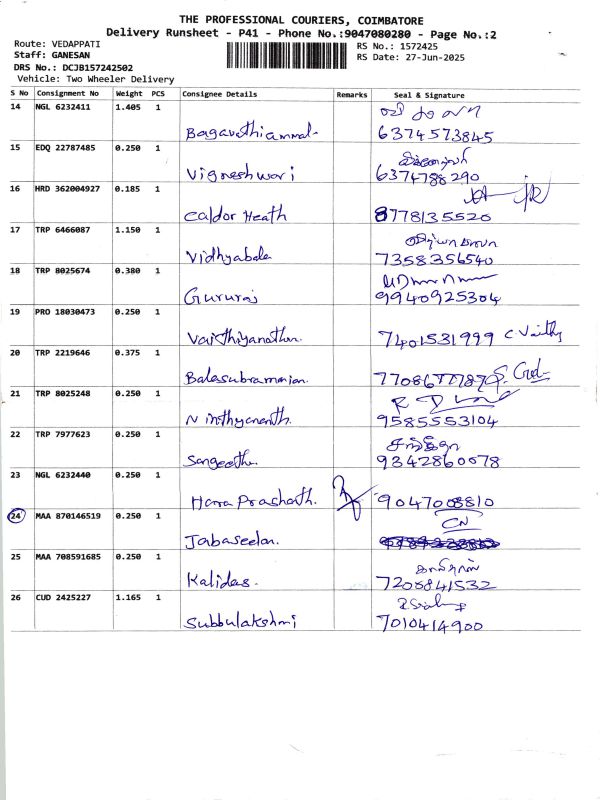 THE PROFESSIONAL COURIERS, COIMBATORE
Delivery Runsheet - P41 - Phone No.:9047080280 - Page No.:2
Route: VEDAPPATI
RS No.: 1572425
Staff: GANESAN
RS Date: 27-Jun-2025
DRS No.: DCJB157242502
Vehicle: Two Wheeler Delivery
S No Consignment No Weight PCS Consignee Details Remarks Seal & Signature
14 NGL 6232411 1.405 1
Bagavathiammal. 6374573845
15 EDQ 22787485 0.250 1
Vigneshwari 6374788290
16 HRD 362004927 0.185 1
Caldor Heath 8778135520
17 TRP 6466087 1.150 1
Vidhyabala 7358356540
18 TRP 8025674 0.380 1
Gururaj 9940925304
19 PRO 18030473 0.250 1
Vaithiyanathan. 7401531999 C. Vaithy
20 TRP 2219646 0.375 1
Balasubramanian.
21 TRP 8025248 0.250 1
Ninthyananth. 9585553104
22 TRP 7977623 0.250 1
Sangeetha. 9342860078
23 NGL 6232440 0.250 1
Hara Prashath. 9047008810
24 MAA 870146519 0.250 1
CN
Jabaseelan.
25 MAA 708591685 0.250 1
Kalidas. 7200841532
26 CUD 2425227 1.165 1
Subbulakshmi 7010414900